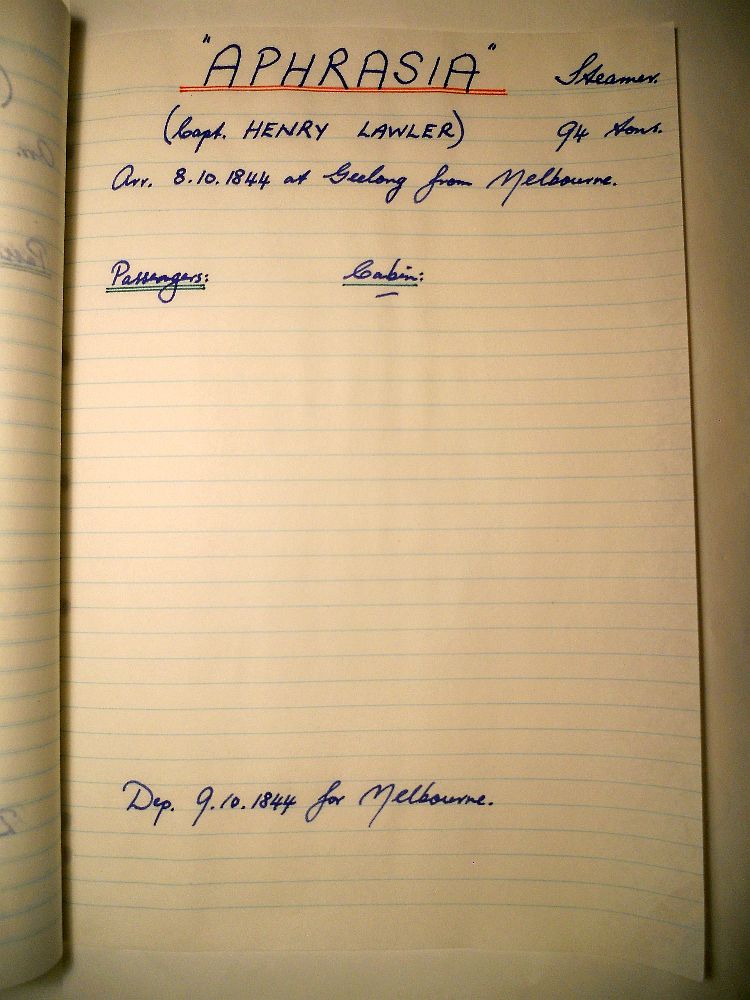 "APHRASIA" Steamer.
(Capt. HENRY LAWLER) 94 tons.
Arr. 8.10.1844 at Geelong from Melbourne.
Passengers: Cabin:
Dep. 9.10.1844 for Melbourne.